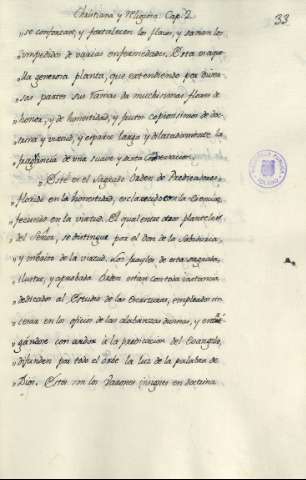 Christiana y Milagrosa Cap. 2.
33
„se confortan, y fortalecen los flacos, y sanan los
„impedidos de varias enfermedades. Esta es aque
„lla generosa planta, que extendiendo por diver
„sas partes sus ramas da muchisimas flores de
„honor, y de honestidad, y frutos copiosisimos de doc
„trina y virtud, y esparce larga y dilatadamente la
„fragancia de una suave y santa
„Este es el Sagrado Orden de Predicadores,
„florido en la honestidad, esclarecido en la Ciencia,
„fecundo en la virtud. El qual entre otros planteles
„del Señor, se distingue por el don de la Sabiduria,
„y merito de la virtud. Los frayles de esta sagrada,
„ilustre, y aprobada Orden estan con toda instancia
„dedicados al Estudio de las Escrituras, empleados sin
„cesar en los oficios de las alabanzas divinas, y entre
„gandose con ardor à la predicacion del Evangelio,
„difunden por todo el orbe la luz de la palabra de
„Dios. Estos son los Varones insignes en doctrina